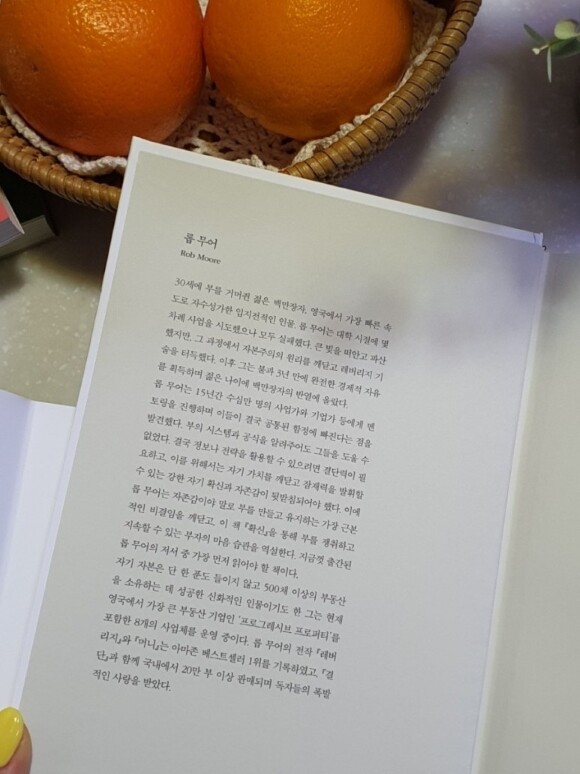 롭 무어
Rob Moore
30세에 부를 거머쥔 젊은 백만장자, 영국에서 가장 빠른 속
도로 자수성가한 입지전적인 인물. 롭 무어는 대학 시절에 몇
차례 사업을 시도했으나 모두 실패했다. 큰 빚을 떠안고 파산
했지만, 그 과정에서 자본주의의 원리를 깨닫고 레버리지 기
술을 터득했다. 이후 그는 불과 3년 만에 완전한 경제적 자유
를 획득하며 젊은 나이에 백만장자의 반열에 올랐다.
롭 무어는 15년간 수십만 명의 사업가와 기업가 등에게 멘
토링을 진행하며 이들이 결국 공통된 함정에 빠진다는 점을
발견했다. 부의 시스템과 공식을 알려주어도 그들을 도울 수
없었다. 결국 정보나 전략을 활용할 수 있으려면 결단력이 필
요하고, 이를 위해서는 자기 가치를 깨닫고 잠재력을 발휘할
수 있는 강한 자기 확신과 자존감이 뒷받침되어야 했다. 이에
롭 무어는 자존감이야 말로 부를 만들고 유지하는 가장 근본
적인 비결임을 깨닫고, 이 책 『확신』을 통해 부를 쟁취하고
지속할 수 있는 부자의 마음 습관을 역설한다. 지금껏 출간된
롭 무어의 저서 중 가장 먼저 읽어야 할 책이다.
자기 자본은 단 한 푼도 들이지 않고 500채 이상의 부동산
을 소유하는 데 성공한 신화적인 인물이기도 한 그는 현재
영국에서 가장 큰 부동산 기업인 ‘프로그레시브 프로퍼티’를
포함한 8개의 사업체를 운영 중이다. 롭 무어의 전작 『레버
리지』와 『머니』는 아마존 베스트셀러 1위를 기록하였고, 『결
단』과 함께 국내에서 20만 부 이상 판매되며 독자들의 폭발
적인 사랑을 받았다.